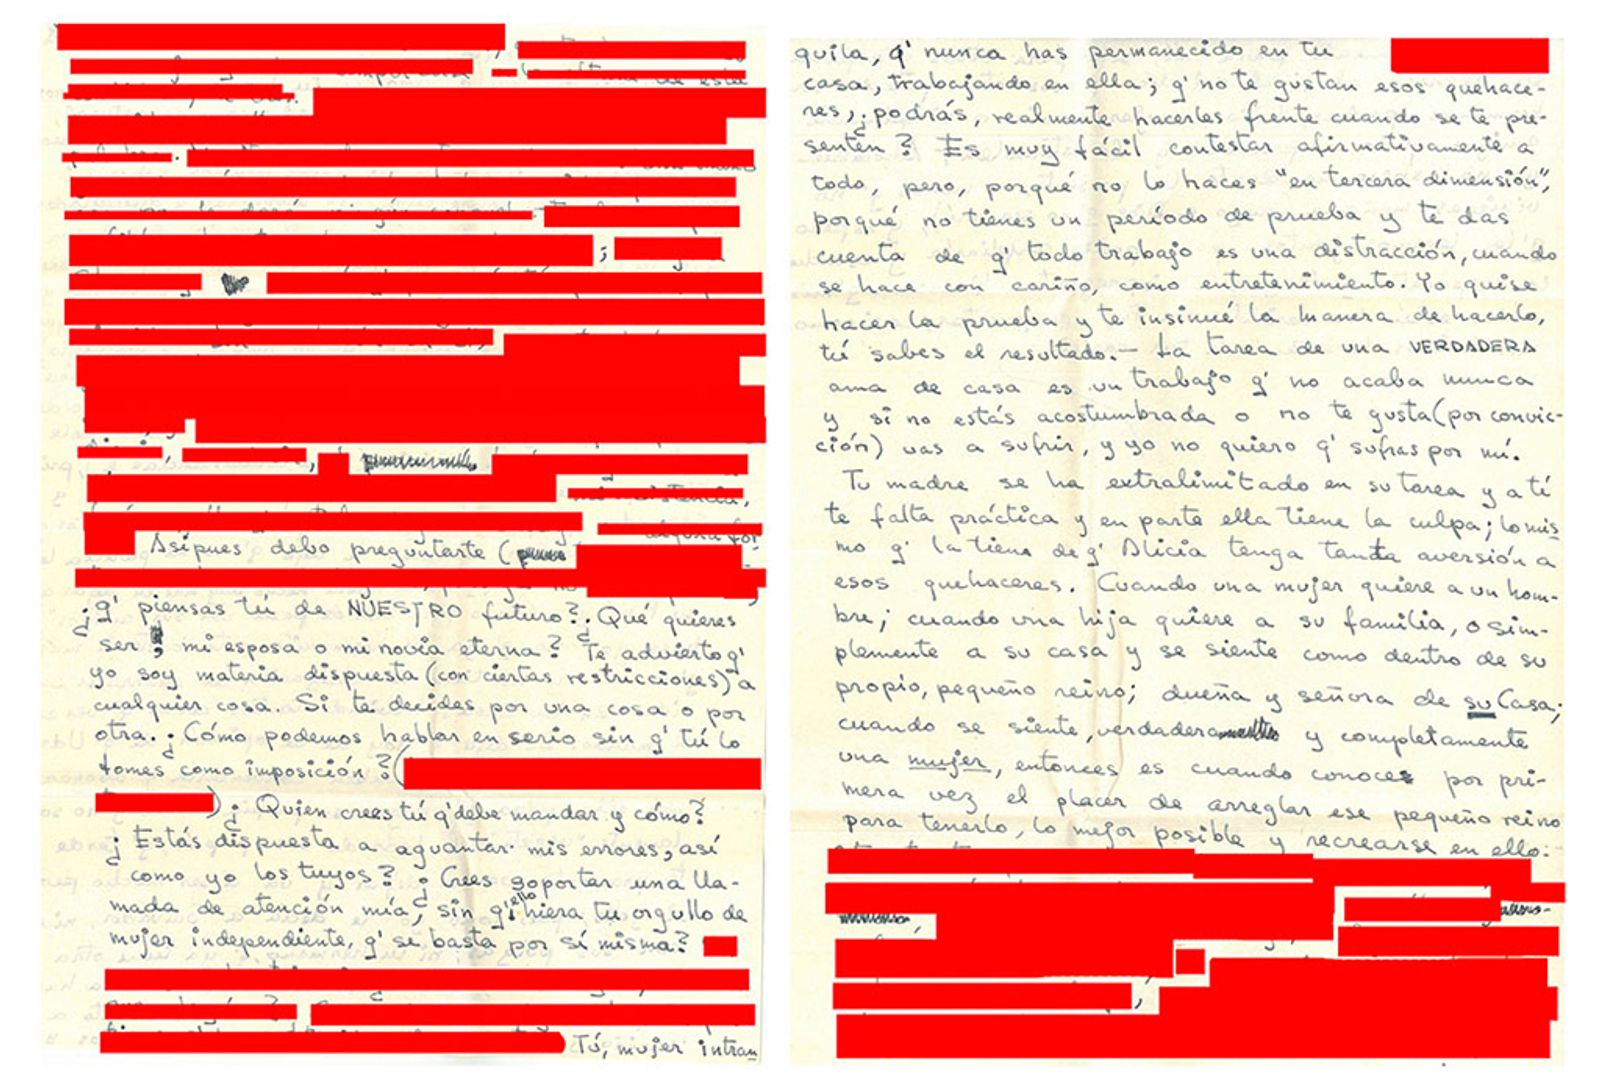 Asípues debo preguntarte (
¿q' piensas tú de NUESTRO futuro?. ¿Qué quieres
ser, mi esposa o mi novia eterna? Te advierto q'
yo soy materia dispuesta (con ciertas restricciones) a
cualquier cosa. Si te decides por una cosa o por
otra. ¿Cómo podemos hablar en serio sin q' tú lo
tomes como imposición? (
) ¿Quien crees tú q' debe mandar y cómo?
¿Estás dispuesta a aguantar mis errores, así
como yo los tuyos? ¿Crees soportar una lla-
mada de atención mía, sin q' ello hiera tu orgullo de
mujer independiente, q' se basta por sí misma?
Tú, mujer intran
quila, q' nunca has permanecido en tu
casa, trabajando en ella; q' no te gustan esos quehace-
res, ¿podrás, realmente hacerles frente cuando se te pre-
senten? Es muy fácil contestar afirmativamente a
todo, pero, porqué no lo haces "en tercera dimensión",
porqué no tienes un período de prueba y te das
cuenta de q' todo trabajo es una distracción, cuando
se hace con cariño, como entretenimiento. Yo quise
hacer la prueba y te insinué la manera de hacerlo,
tú sabes el resultado.— La tarea de una VERDADERA
ama de casa es un trabajo q' no acaba nunca
y si no estás acostumbrada o no te gusta (por convic-
ción) vas a sufrir, y yo no quiero q' sufras por mí.
Tu madre se ha extralimitado en su tarea y a tí
te falta práctica y en parte ella tiene la culpa; lo mis
mo q' la tiene de q' Alicia tenga tanta aversión a
esos quehaceres. Cuando una mujer quiere a un hom-
bre; cuando una hija quiere a su familia, o sim-
plemente a su casa y se siente como dentro de su
propio, pequeño reino; dueña y señora de su Casa;
cuando se siente, verdadera y completamente
una mujer, entonces es cuando conoce por pri-
mera vez el placer de arreglar ese pequeño reino
para tenerlo, lo mejor posible y recrearse en ello.